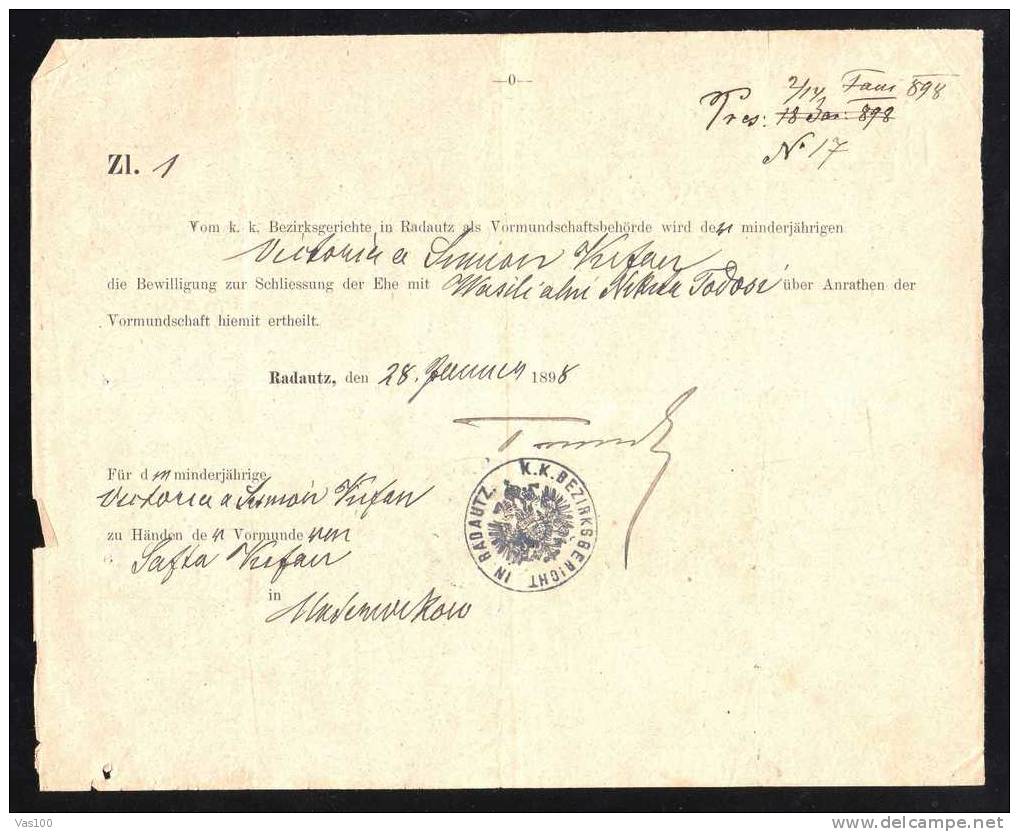 —0—
2/14 898
Pres: 18 Jan: 898
No 17
Zl. 1
Vom k. k. Bezirksgerichte in Radautz als Vormundschaftsbehörde wird den minderjährigen
Victoria a Simion Kifan
die Bewilligung zur Schliessung der Ehe mit Wasili alui Todosi über Anrathen der
Vormundschaft hiemit ertheilt.
Radautz, den 28. Januar 1898
K.K. BEZIRKSGERICHT IN RADAUTZ.
Für d minderjährige
Victoria a Simion Kifan
zu Händen de Vormunde
Safta Kifan
in
Vas100
www.delcampe.net